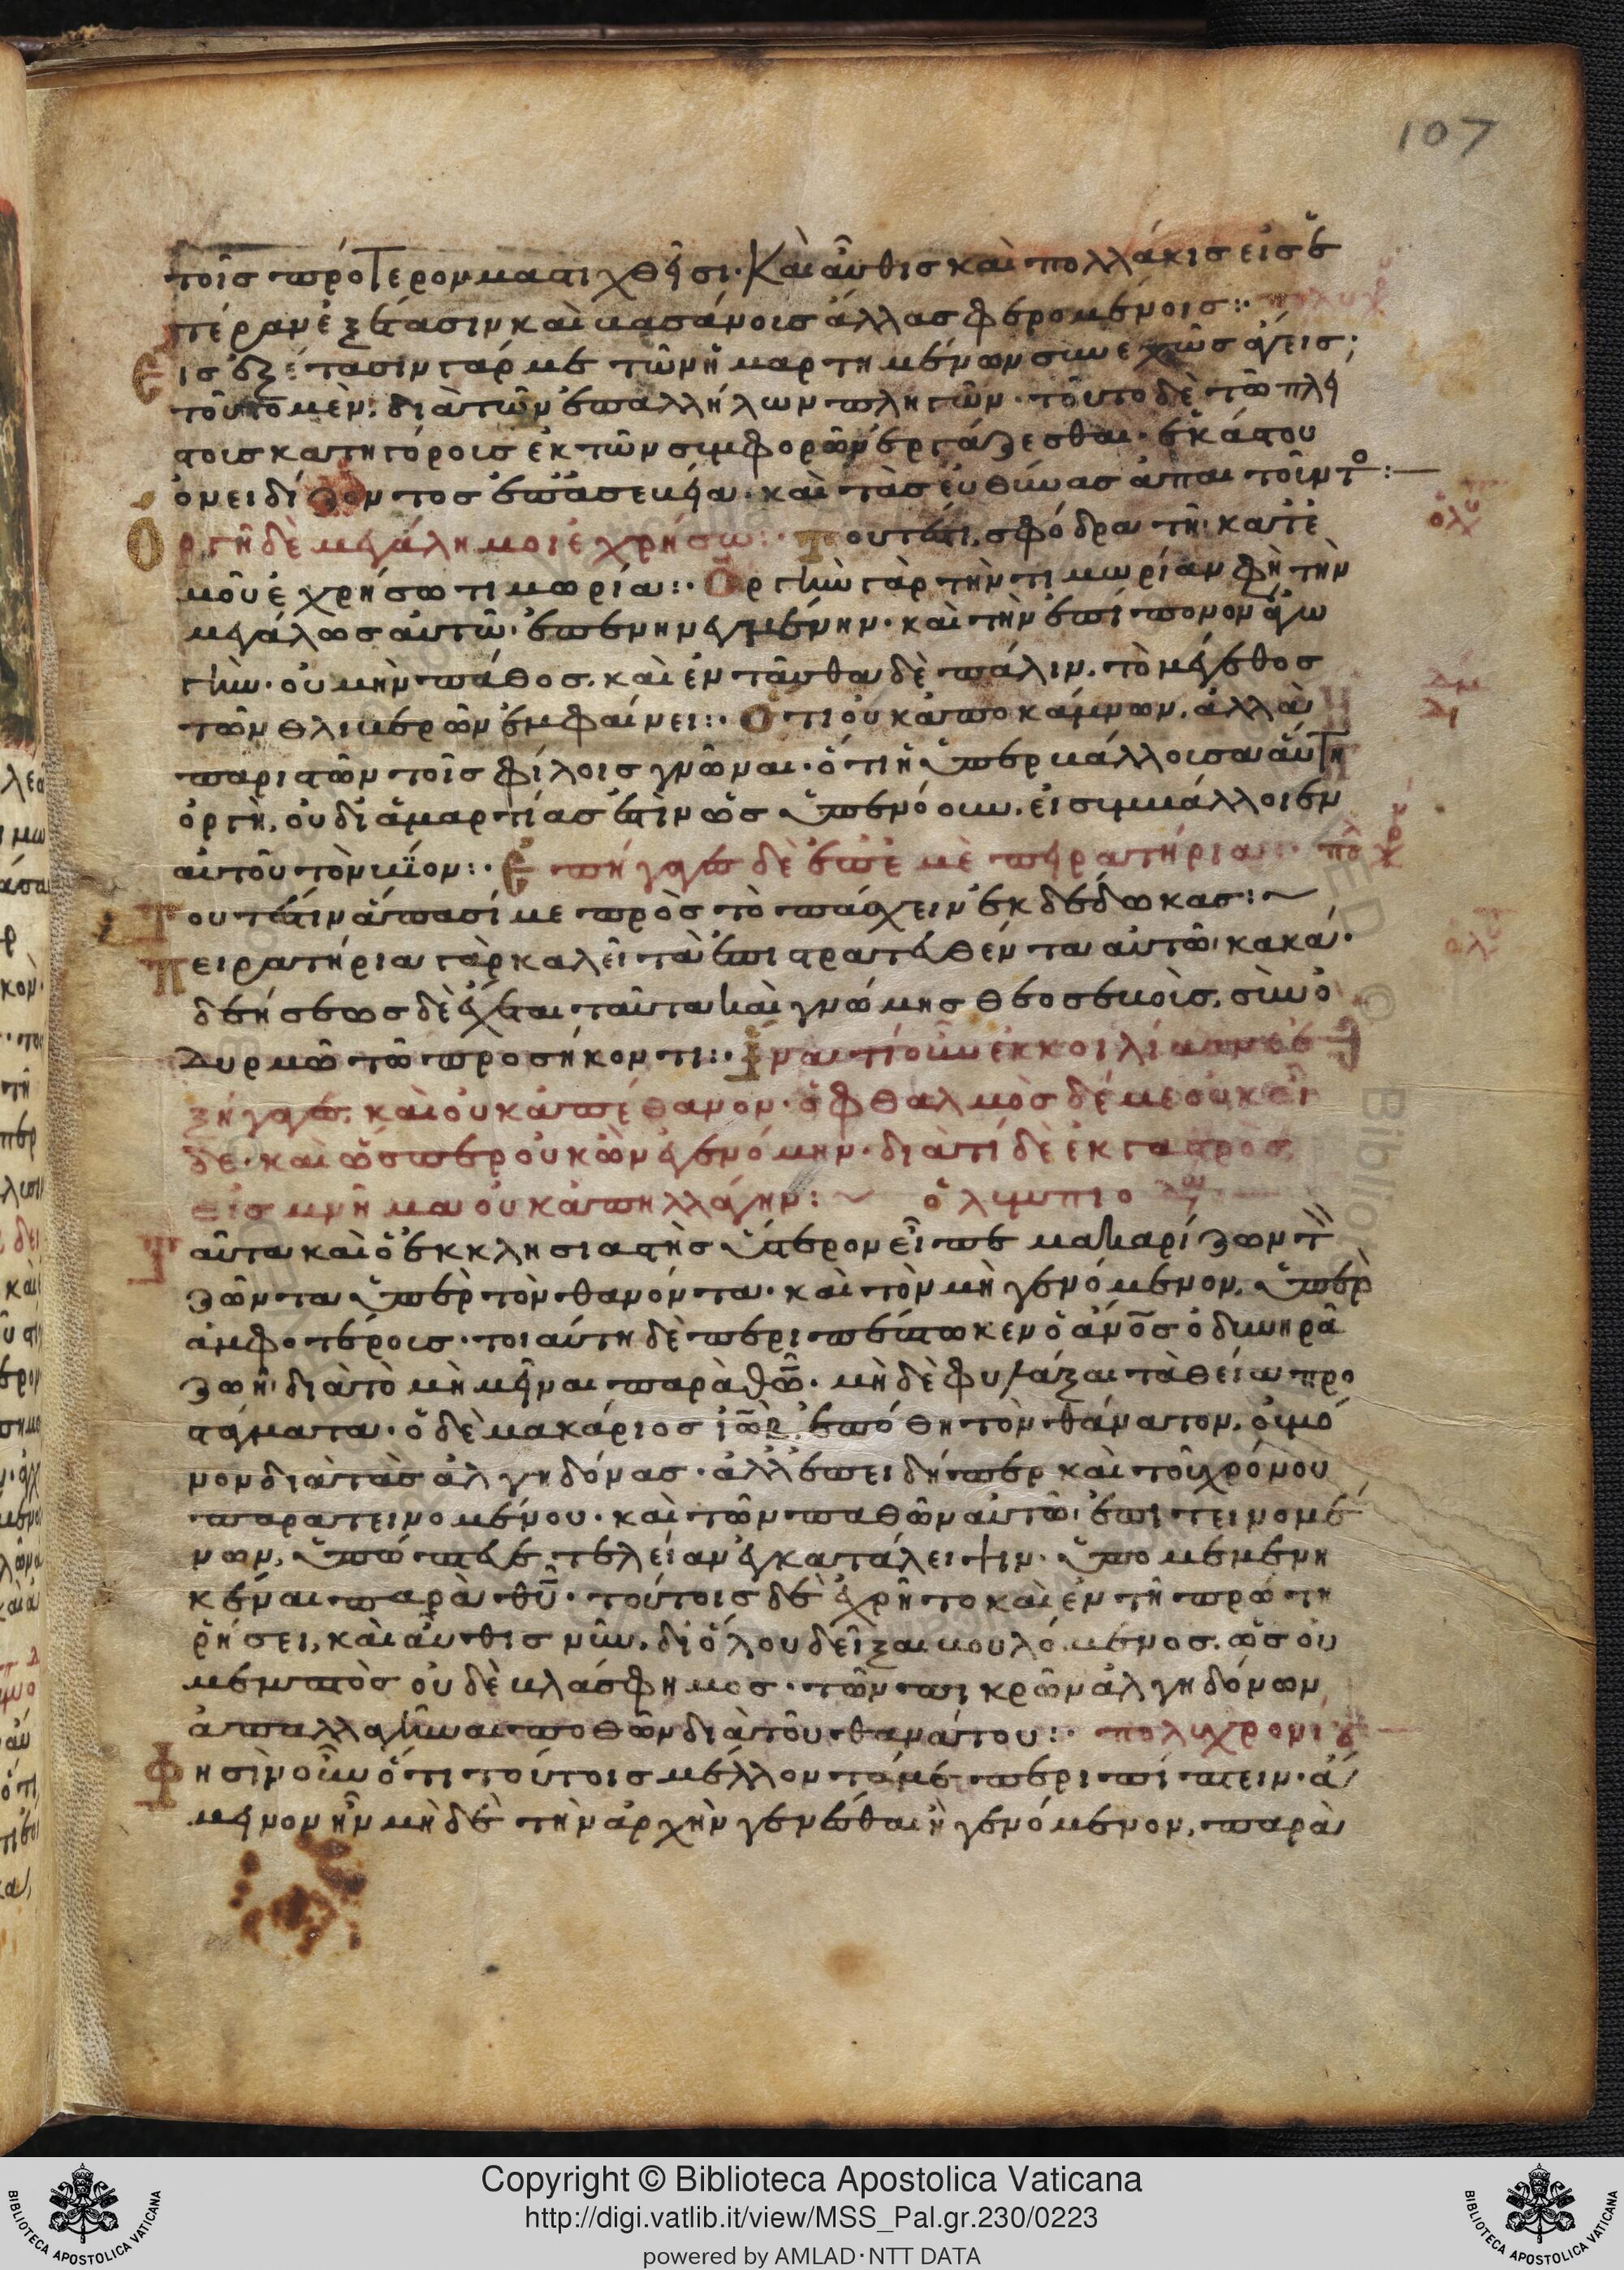 107
τοῖς πρότερον μαστιχθεῖσι· καὶ αὖθις καὶ πολλάκις εἰς ἑ
τέραν ἐξέτασιν καὶ βασάνοις ἄλλας φερομένοις :·
Εἰς ἐξέτασιν γάρ με τῶν ἡμαρτημένων συνεχῶς ἄγεις;
τοῦτο μὲν, διὰ τῶν ἐπαλλήλων πληγῶν· τοῦτο δὲ τῷ πλεί
στοις κατηγόροις ἐκ τῶν συμφορῶν ἐργάζεσθαι· ἑκάστου
ὀνειδίζοντος ἐπ' ἀσεβείᾳ· καὶ τὰς εὐθύνας ἀπαιτοῦντο :—
Ὀργῇ δὲ μεγάλῃ μοι ἐχρήσω :· Τουτέστι, σφόδρα τῇ κατ' ἐ
μοῦ ἐχρήσω τιμωρίᾳ :· Ὀργὴν γὰρ τὴν τιμωρίαν φὴ τὴν
μεγάλως αὐτῷ ἐπενηνεγμένην· καὶ τὴν ἐπίπονον ἀγω
γὴν· οὐ μὴν πάθος· καὶ ἐνταῦθα δὲ πάλιν, τὸ μέγεθος
τῶν θλιβερῶν ἐμφαίνει :· Ὅτι οὐκ ἀποκάμνων, ἀλλὰ
παριστῶν τοῖς φίλοις γνῶναι· ὅτι ἡ ὑπερβάλλουσα αὕτη
ὀργὴ, οὐ δι' ἁμαρτίας ἐστὶν ὡς ὑπενόουν, εἰ συμβάλλοιεν
αὐτοῦ τὸν βίον :· Ἐπήγαγες δὲ ἐπ' ἐμὲ πειρατήρια :·
Τουτέστιν ἅπασί με πρὸς τὸ πάσχειν ἐκδέδωκας :~
Πειρατήρια γὰρ καλεῖ τὰ ἐπιστρατευθέντα αὐτῷ κακά·
δεήσεως δὲ ἔχεται ταῦτα καὶ γνώμης θεοσεβοῦς, σὺν ὀ
δυρμῷ τῷ προσήκοντι :· Ἵνα τί οὖν ἐκ κοιλίας με ἐ
ξήγαγες, καὶ οὐκ ἀπέθανον· ὀφθαλμὸς δέ με οὐκ εἶ
δε· καὶ ὥσπερ οὐκ ὢν ἐγενόμην· διὰ τί δὲ ἐκ γαστρὸς
εἰς μνῆμα οὐκ ἀπηλλάγην :~ ὀλυμπιο δώ
Ταῦτα καὶ ὁ ἐκκλησιαστὴς ὕστερον εἶπε μακαρίζων τὸν
ζῶντα ὑπὲρ τὸν θανόντα· καὶ τὸν μὴ γενόμενον, ὑπὲρ
ἀμφοτέροις· τοιαύτη δὲ περιπέπτωκεν ὁ ἄνος ὀδυνηρᾷ
ζωῇ· διὰ τὸ μὴ μεῖναι παρὰ θῶ· μὴ δὲ φυλάξαι τὰ θεῖα προ
στάγματα· ὁ δὲ μακάριος ἰὼβ, ἐπόθη τὸν θάνατον, οὐ μό
νον διὰ τὰς ἀλγηδόνας· ἀλλ' ἐπειδήπερ καὶ τοῦ χρόνου
παρατεινομένου· καὶ τῶν παθῶν αὐτῷ ἐπιτεινομέ
νων, ὑπώπτευε τελείαν ἐγκατάλειψιν ὑπομεμενη
κέναι παρὰ θῦ· τούτοις δὲ ἐχρῆτο καὶ ἐν τῇ πρώτῃ
ῥήσει, καὶ αὖθις νῦν, δι' ὅλου δεῖξαι βουλόμενος, ὡς οὐ
μεμπτὸς οὐδὲ βλάσφημος· τῶν πικρῶν ἀλγηδόνων
ἀπαλλαγῆναι ποθῶν διὰ τοῦ θανάτου :· πολυχρονίου
Φησὶν οὖν ὅτι τούτοις μέλλοντά με περιπίπτειν· ἄ
μεινον ἦν μὴ δὲ τὴν ἀρχὴν γενέσθαι ἢ γενόμενον, παρὰ
Copyright © Biblioteca Apostolica Vaticana
http://digi.vatlib.it/view/MSS_Pal.gr.230/0223
powered by AMLAD·NTT DATA
BIBLIOTECA APOSTOLICA VATICANA
BIBLIOTECA APOSTOLICA VATICANA